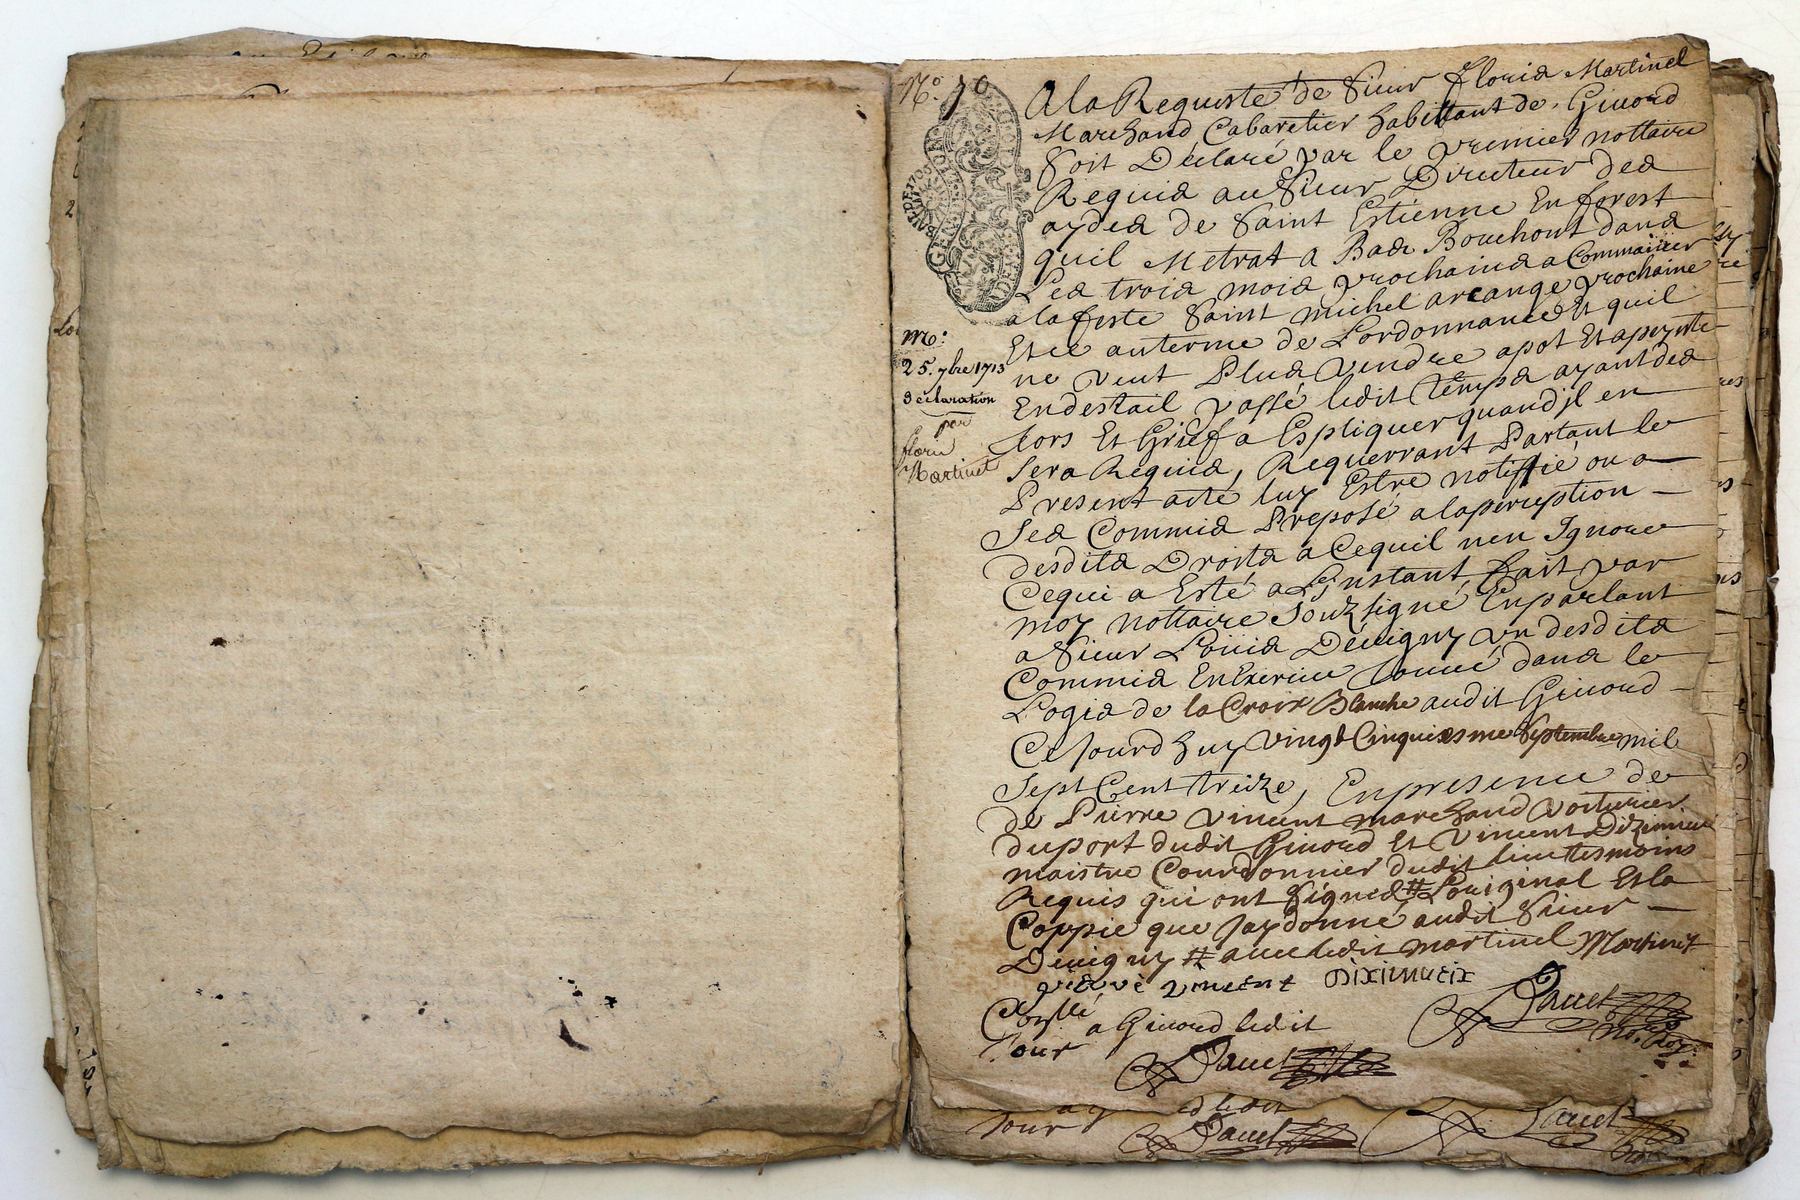 No. 70
A la Requeste de Sieur Floris Martinel
Marchand Cabaretier habittant de Givord
Soit Déclaré par le premier nottaire
Requis au Sieur Directeur des
aydes de Saint Estienne En forest
quil Metrat a Bas Bouchont dans
Les trois mois prochains a Commaincer
a la feste Saint Michel arcange prochaine
Et ce au terme de Lordonnance Et quil
ne veut Plus Vendre a pot Et a peynte
En destail passé ledit temps ayant des
tors Et Grief a Espliquer quand jl en
Sera Requis, Requerrant Partant le
Present acte luy Estre notiffié ou a
Ses Commis Preposé a la perception
desdits Droits a Ce quil nen Ignore
Ce qui a Esté a L'Instant fait par
moy nottaire Souzsigné En parlant
a Sieur Louis Devigny un desdits
Commis En Exercice trouvé dans le
Logis de la Croix Blanche audit Givord
Ce Jourdhuy Vingt Cinquiesme Septembre mil
Sept Cent treize, En presence de
de Pierre Vincent marchand Voiturier
du port dudit Givord Et Vincent Dizimieu
maistre Courdonnier dudit lieu tesmoins
Requis qui ont Signes # L'original Et la
Coppie que Jay donné audit Sieur
Devigny # avec ledit Martinel Martinet
pierre vincent Diximieix
a Givord ledit
Jour
no. Roy.
GEN
BAIL DE
mo:
25. 7bre 1713
declaration
par
Floris
Martinet
ledit
Jour